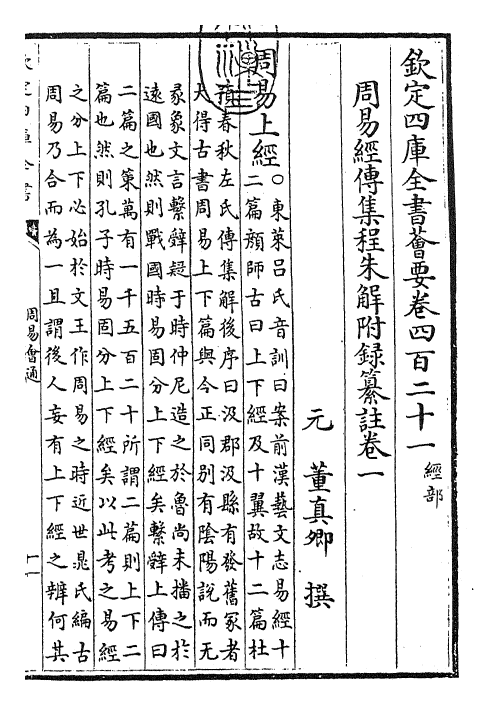 欽定四庫全書薈要卷四百二十一 經部
周易經傳集程朱解附録纂註卷一
元 董真卿 撰
周易上經○東萊呂氏音訓曰案前漢藝文志易經十
二篇顔師古曰上下經及十翼故十二篇杜
預春秋左氏傳集解後序曰汲郡汲縣有發舊冢者
大得古書周易上下篇與今正同别有陰陽說而无
彖象文言繫辭疑于時仲尼造之於魯尚未播之於
遠國也然則戰國時易固分上下經矣繫辭上傳曰
二篇之策萬有一千五百二十所謂二篇則上下二
篇也然則孔子時易固分上下經矣以此考之易經
之分上下必始於文王作周易之時近世晁氏編古
周易乃合而為一且謂後人妄有上下經之辨何其
欽定四庫全書
周易會通
一